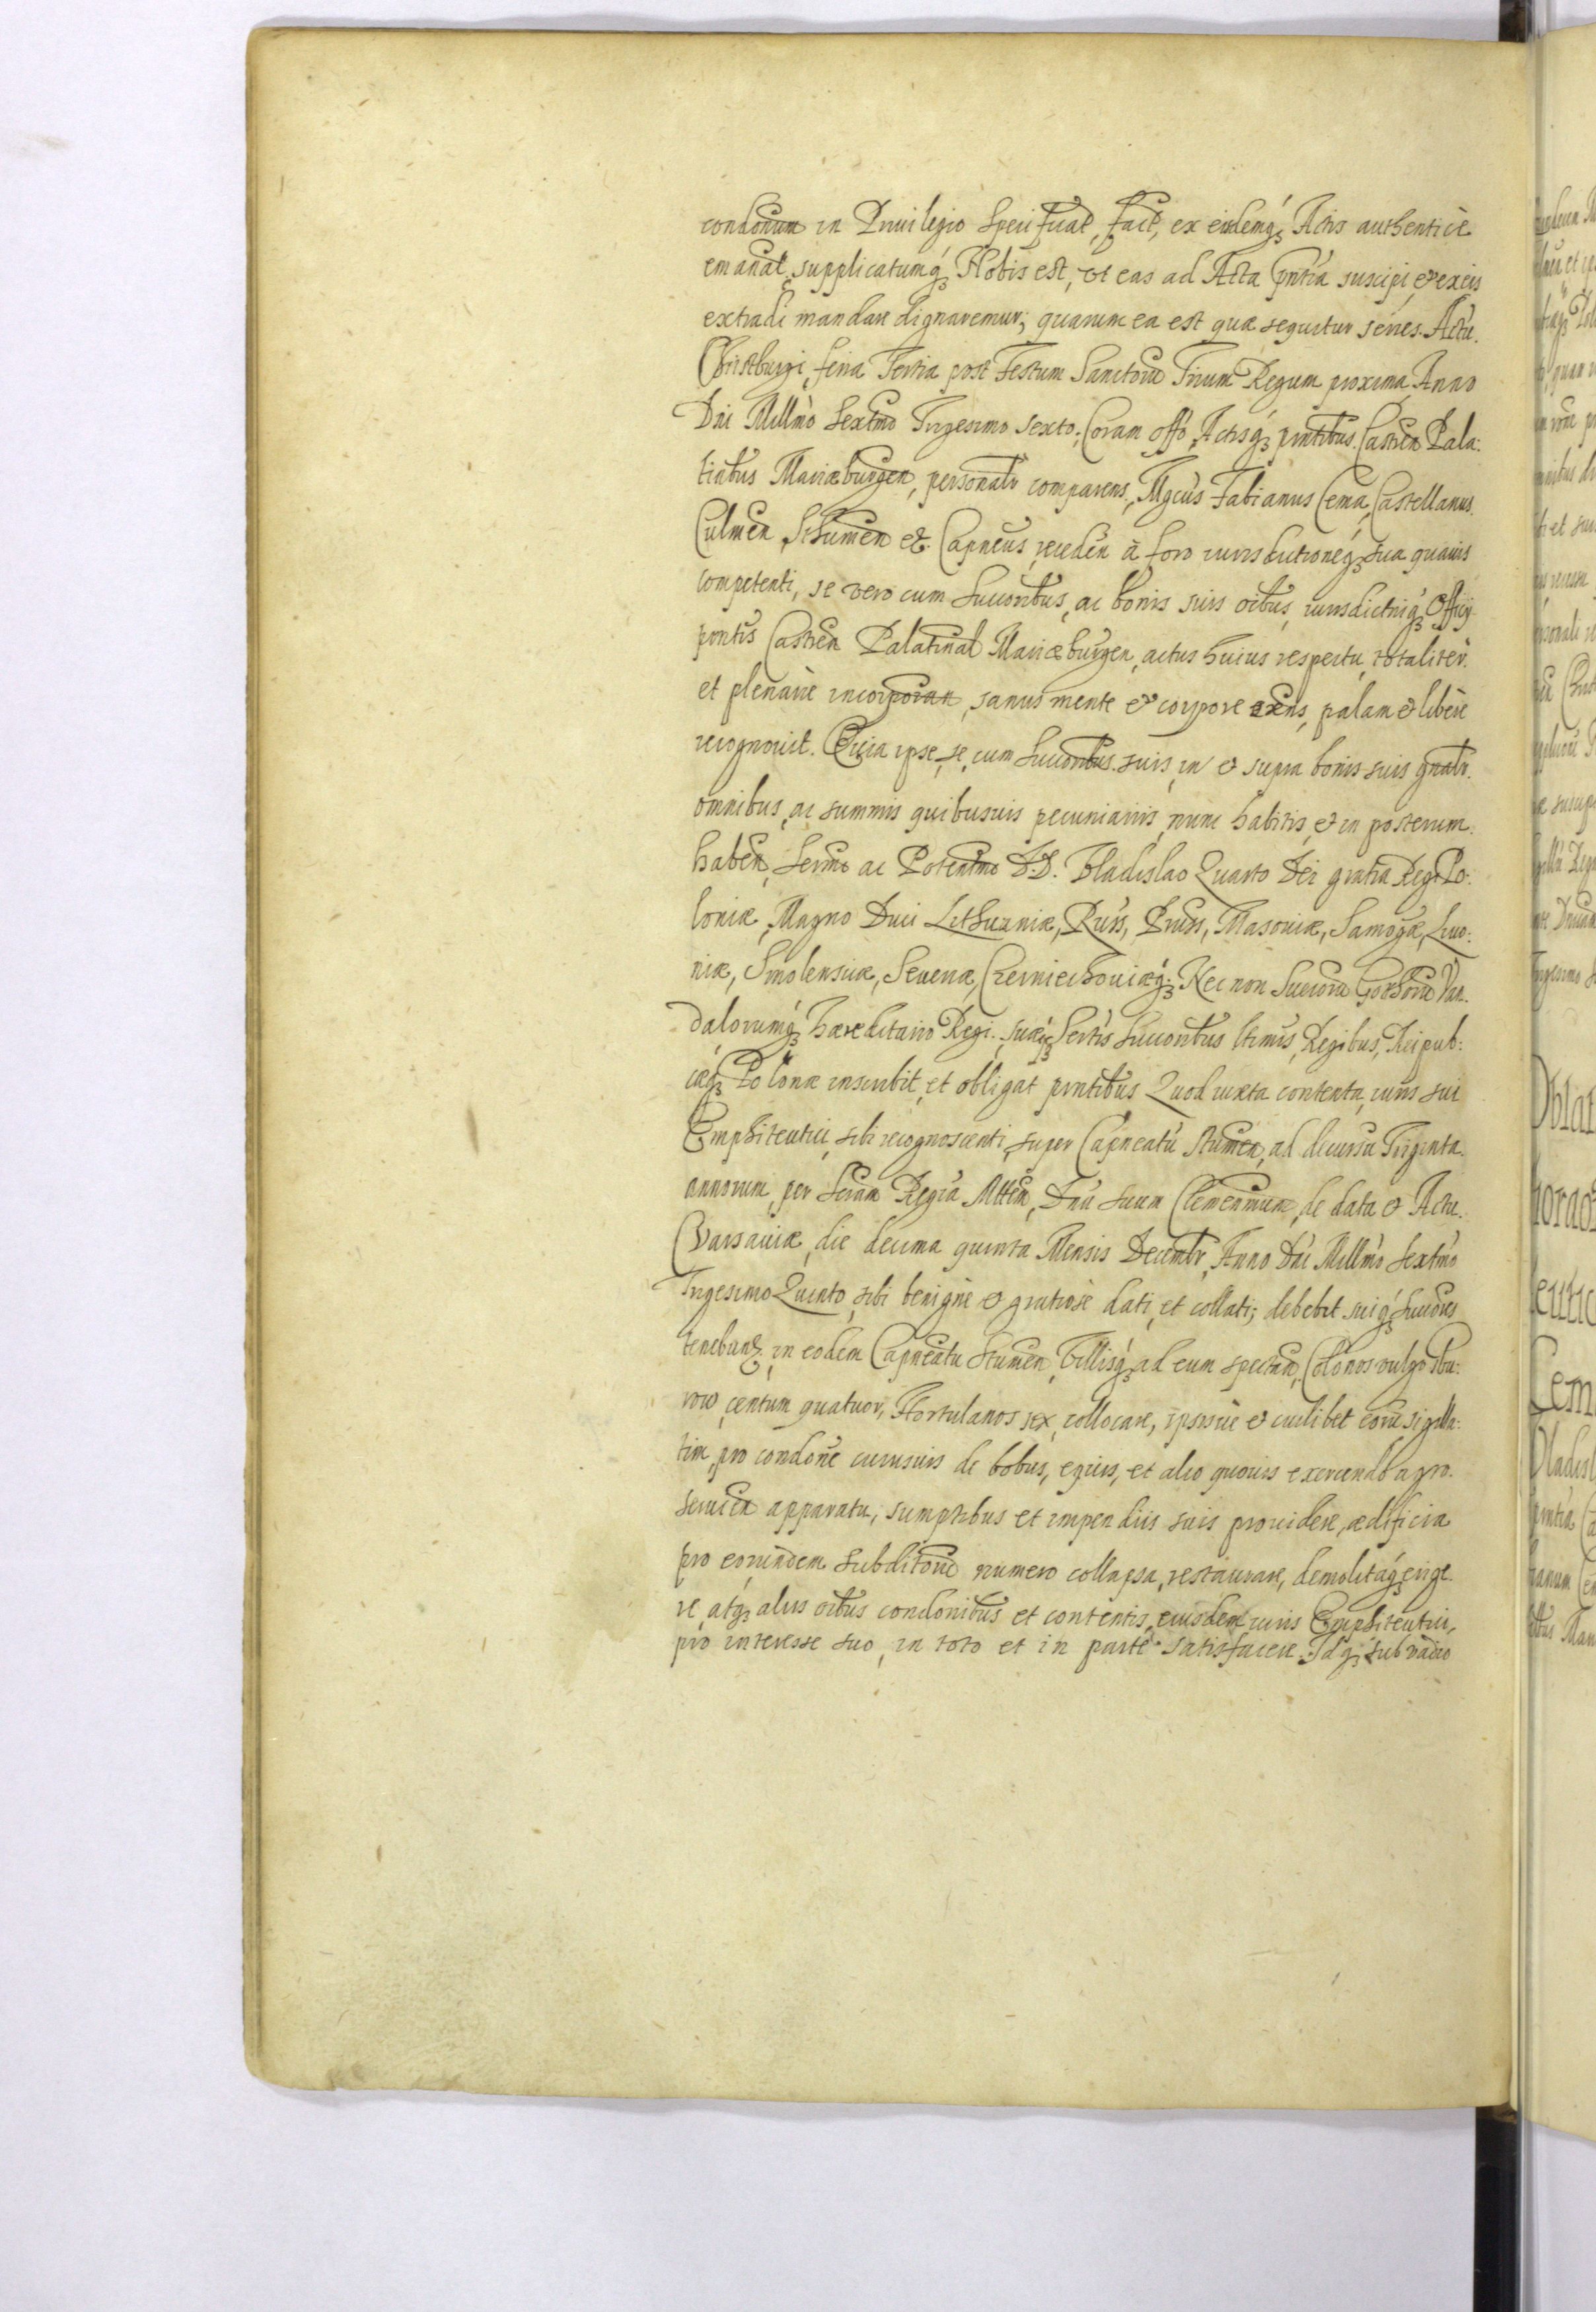 condonum in Priuilegio specificat, fact, ex eisdemq́ꝫ Actis authenticè
emanat, supplicatumq́ꝫ Nobis est, vt eas ad Acta pñtia suscipi, et ex eis
extradi mandare dignaremur; quarum ea est quæ sequitur series. Actu
Christburgi, feria Tertia post Festum Sanctorũ Trium Regum proxima, Anno
Dñi Millm̃o Sextm̃o Trigesimo sexto, Coram offõ, Actisq́ꝫ pntibus Castreñ Pala:
tintbus Mariæburgeñ, personalr̃ comparens, Mgcũs Fabianus Cema, Castellanus
Culmeñ, Sthumeñ etc. Capneus, recedeñ à foro iurisdictioneq́ꝫ sua quauis
competenti, se vero cum Succoribus, ac bonis suis oĩbus, iurisdictniq́ꝫ Officij
pñtis Castreñ Palatinal Mariæburgeñ, actus huius respectu, totaliter
et plenariè incorporañ, sanus mente et corpore exẽns, palam et liberè
recognouit. Quia ipse, se, cum Succoribus suis, in et supra bonis suis gnalr̃
omnibus, ac summis quibusuis pecuniariis, nunc habitis, et in posterum
habeñ, Sermõ ac Potentmõ D.D. Vladislao Quarto Dei gratia Regi Po:
loniæ, Magno Duci Lithuaniæ, Russ, Pruss, Masouiæ, Samogæ, Liuo:
niæ, Smolensciæ, Seueriæ, Czerniechouiæq́ꝫ. Nec non Suecorũ Gothorũ Van:
dalorumq́ꝫ hæreditario Regi, suæq́ꝫ Sertis Succoribus ltimis, Regibus, Reipub:
cæq́ꝫ Polonæ inscribit, et obligat pntibus Quod iuxta contenta, iuris sui
Emphiteutici, sibi recognoscenti, super Capneatũ Stumeñ, ad decursũ Triginta
annorum, per Seram Regiã Mttem, Dnũ suum Clemenmum, de data et Actu
Varsauiæ, die decima quinta Mensis Decembr, Anno Dñi Millm̃o Sextm̃o
Trigesimo Quinto, sibi benignè et gratiosè dati, et collati; debebit suiq́ꝫ Succores
tenebunt, in eodem Capneatu Stumeñ, Villisq́ꝫ ad eum spectañ, Colonos vulgo Bu:
row, centum quatuor, Hortulanos sex, collocare, ipsisue et cuilibet eorũ sigilla:
tim, pro condone cuiusuis de bobus, equis, et alio quouis exercendo agro
seruieñ apparatu, sumptibus et impendiis suis prouidere, ædificia
pro eorundem subditorũ numero collapsa, restaurare, demolitaq́ꝫ, erige
re, atqꝫ aliis oĩbus condonibus et contentis, eiusdem iuris Emphiteutici,
pro interesse suo, in toto et in parte satisfacere. Idqꝫ sub vadio